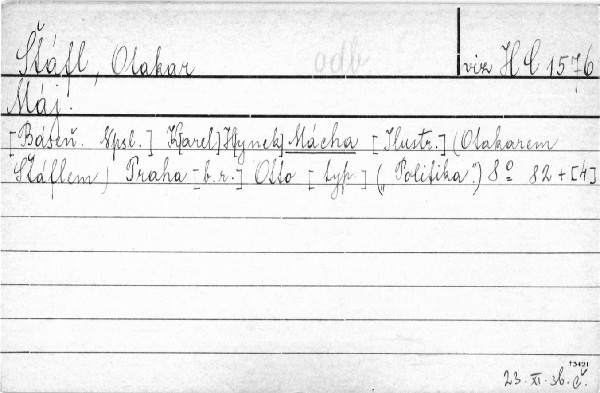 Štáfl, Otakar odb viz HC 1576
Máj.
[Báseň. Npsl.] K[arel] H[ynek] Mácha [Ilustr.] (Otakarem
Štáflem) Praha [b.r.] Otto [typ.] („Politika“.) 8° 82 + [4]
23. XI. 36. Č.